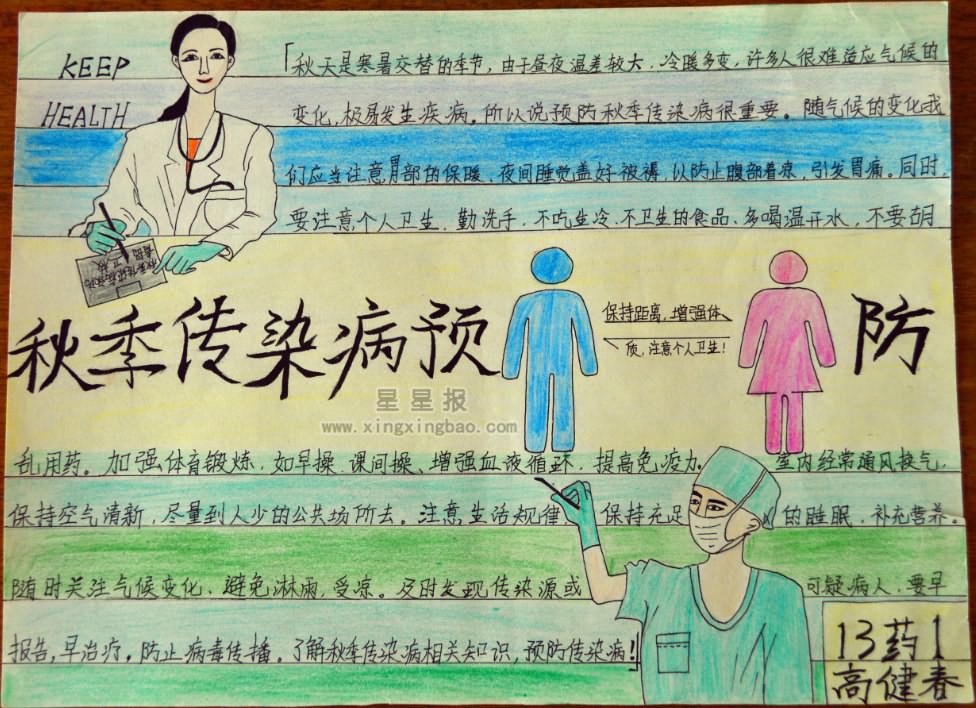 KEEP
HEALTH
「秋天是寒暑交替的季节，由于昼夜温差较大．冷暖多变，许多人很难适应气候的
变化，极易发生疾病。所以说预防秋季传染病很重要。随气候的变化我
们应当注意胃部的保暖、夜间睡觉盖好被褥，以防止腹部着凉，引发胃痛。同时，
要注意个人卫生．勤洗手．不吃生冷．不卫生的食品、多喝温开水，不要胡
秋季传染病预
防
保持距离，增强体
质，注意个人卫生！
星星报
www.xingxingbao.com
乱用药。加强体育锻炼．如早操．课间操、增强血液循环．提高免疫力．室内经常通风换气，
保持空气清新，尽量到人少的公共场所去。注意生活规律．保持充足的睡眠．补充营养。
随时关注气候变化．避免淋雨，受凉。及时发现传染源或可疑病人．要早
报告，早治疗。防止病毒传播。了解秋季传染病相关知识，预防传染病！
13药1
高健春